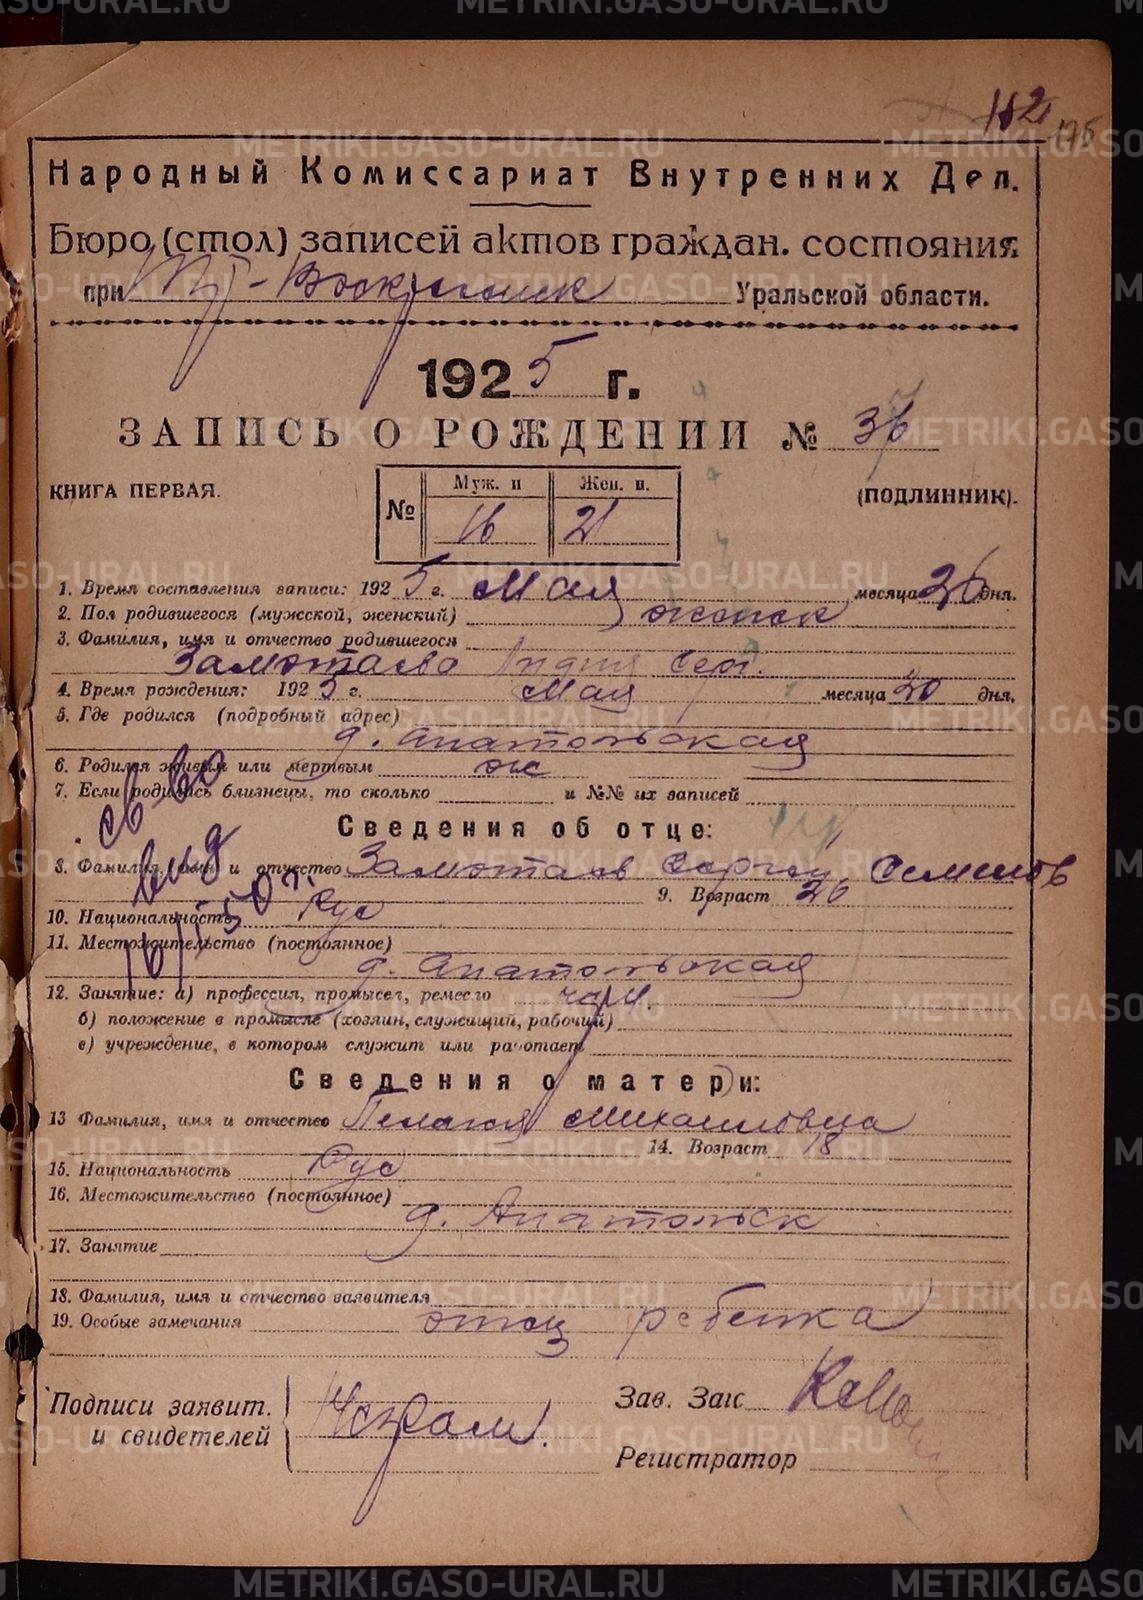 112
175
Народный Комиссариат Внутренних Дел.
Бюро (стол) записей актов граждан. состояния
при Уральской области.
1925 г.
ЗАПИСЬ О РОЖДЕНИИ № 36
КНИГА ПЕРВАЯ.
(ПОДЛИННИК).
№ Муж. п Жен. п.
16 21
1. Время составления записи: 1925 г. Мая месяца 26 дня.
2. Пол родившегося (мужской, женский) женск
3. Фамилия, имя и отчество родившегося
Замотаева Лидия Серг.
4. Время рождения: 1925 г. Мая месяца 20 дня.
5. Где родился (подробный адрес)
д. Анатольская
6. Родился живым или мертвым ж
7. Если родились близнецы, то сколько и №№ их записей
св-во
выд
Сведения об отце:
8. Фамилия, имя и отчество Замотаев Сергей Семенов
9. Возраст 26
10. Национальность Рус
11. Местожительство (постоянное)
д. Анатольская
12. Занятие: а) профессия, промысел, ремесло
б) положение в промысле (хозяин, служащий, рабочий)
в) учреждение, в котором служит или работает
Сведения о матери:
13 Фамилия, имя и отчество Пелагея Михаиловна
14. Возраст 18
15. Национальность Рус
16. Местожительство (постоянное)
д. Анатольск
17. Занятие
18. Фамилия, имя и отчество заявителя
19. Особые замечания отец ребенка
Подписи заявит.
и свидетелей
Неграм.
Зав. Загс
Регистратор
METRIKI.GASO-URAL.RU